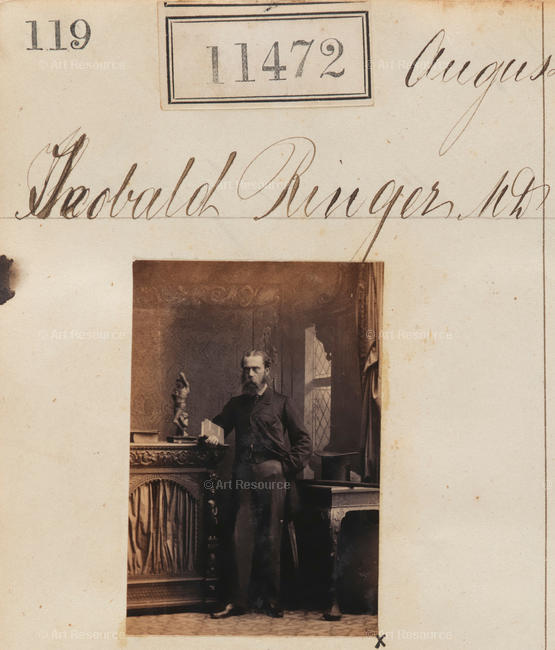 119
11472
Augus
Theobald Ringer, MD
x
© Art Resource
© Art Resource
© Art Resource
© Art Resource
© Art Resource
© Art Resource
© Art Resource
© Art Resource
© Art Resource